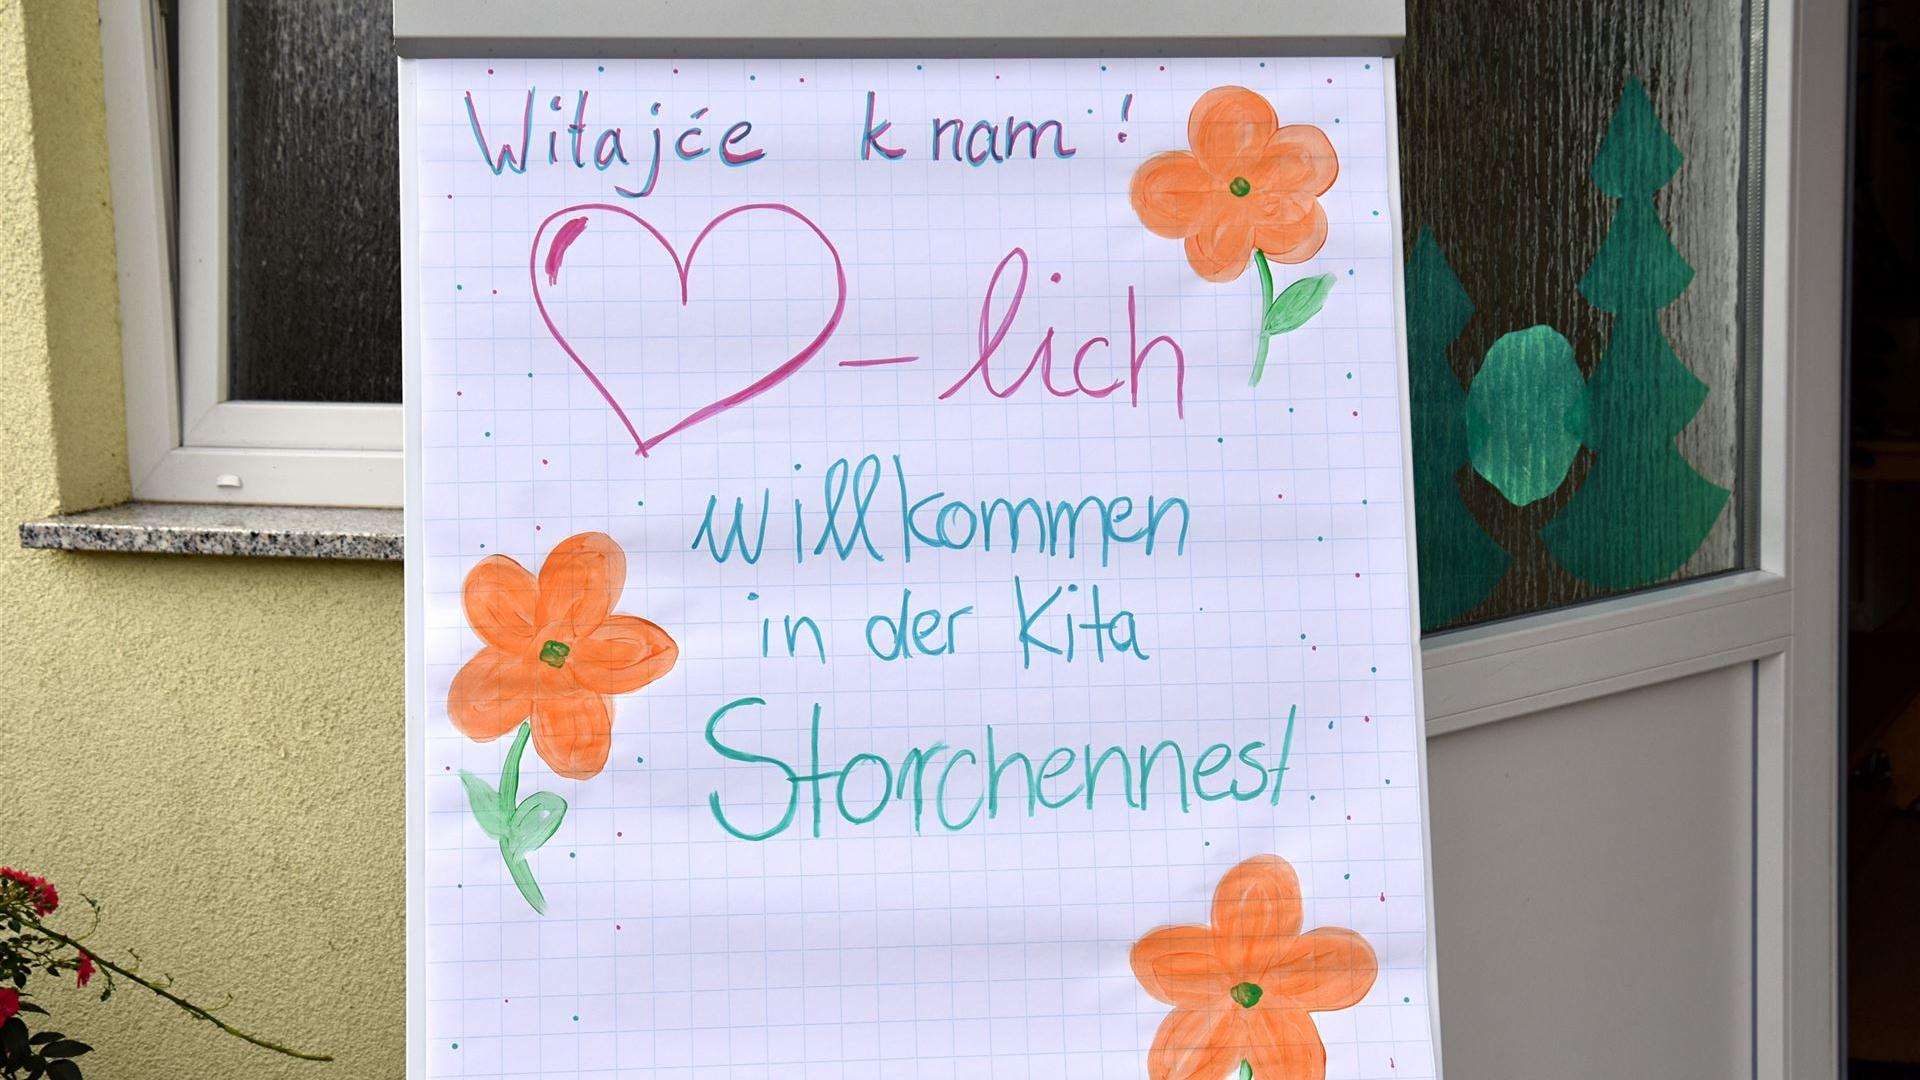 Witajće k nam!
-lich
willkommen
in der Kita
Storchennest